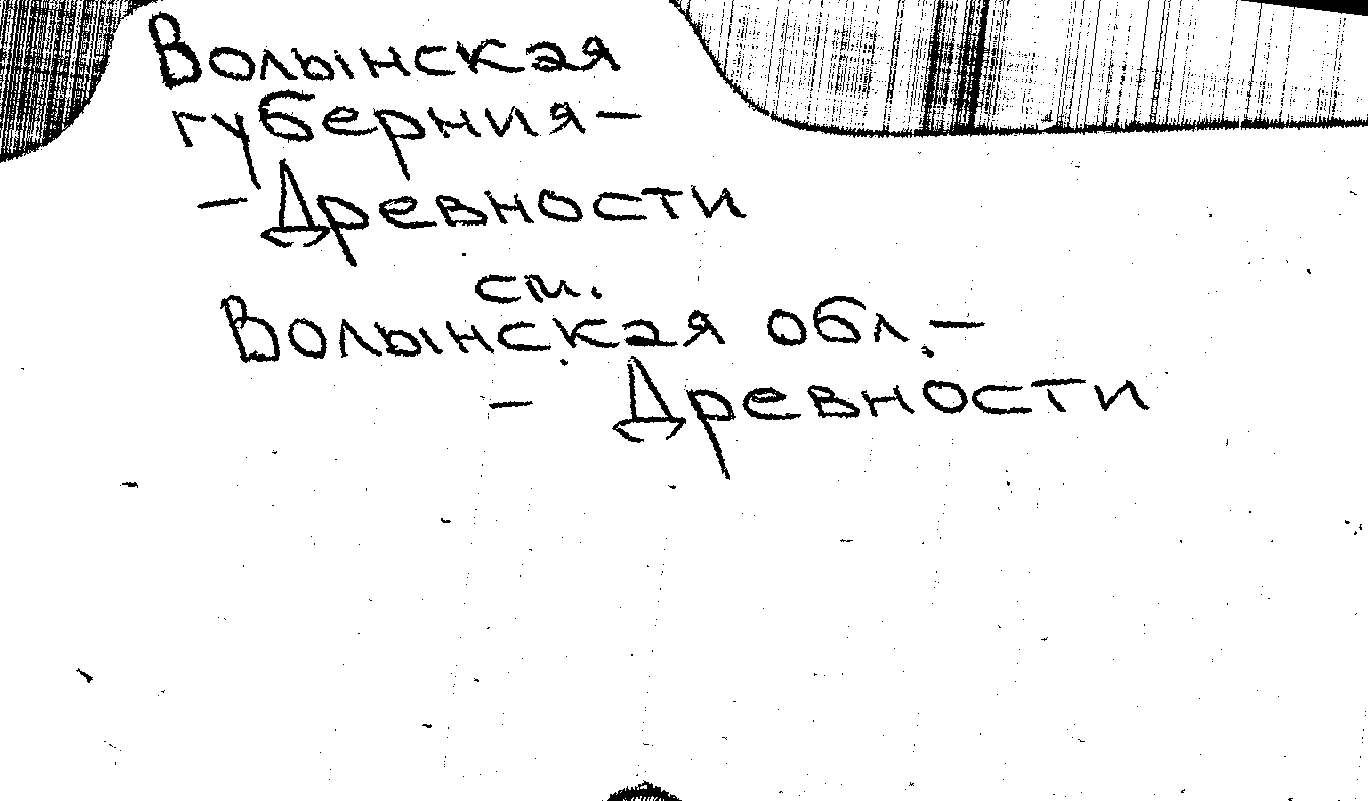 Волынская
губерния-
- Древности
см.
Волынская обл.-
- Древности